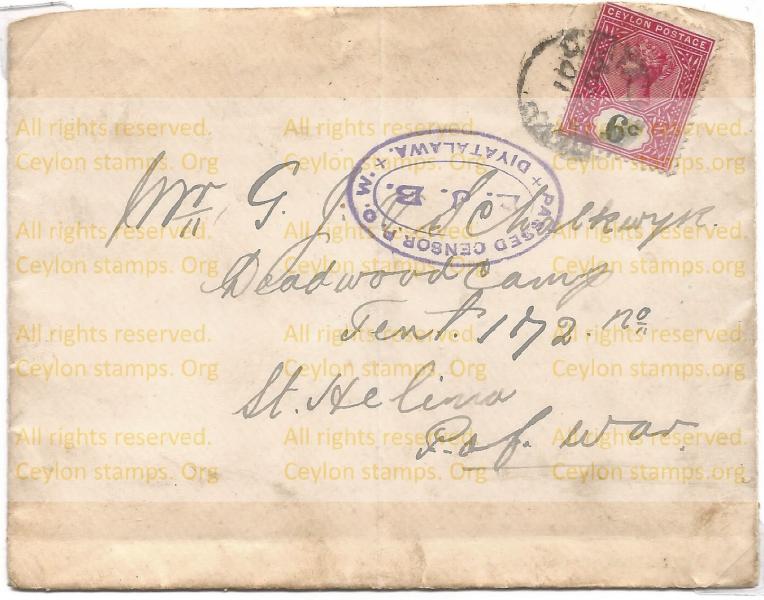 CEYLON POSTAGE
6c
PASSED CENSOR P.O.W. + DIYATALAWA. +
J. B.
Mr G. J. Schalkwyk.
Deadwood Camp
Tent. 172. no
St. Helina
P. of. War.
All rights reserved. All rights reserved. All rights reserved.
Ceylon stamps. Org Ceylon stamps. Org Ceylon stamps. Org
All rights reserved. All rights reserved. All rights reserved.
Ceylon stamps. Org Ceylon stamps. Org Ceylon stamps. Org
All rights reserved. All rights reserved. All rights reserved.
Ceylon stamps. Org Ceylon stamps. Org Ceylon stamps. Org
All rights reserved. All rights reserved. All rights reserved.
Ceylon stamps. Org Ceylon stamps. Org Ceylon stamps. Org